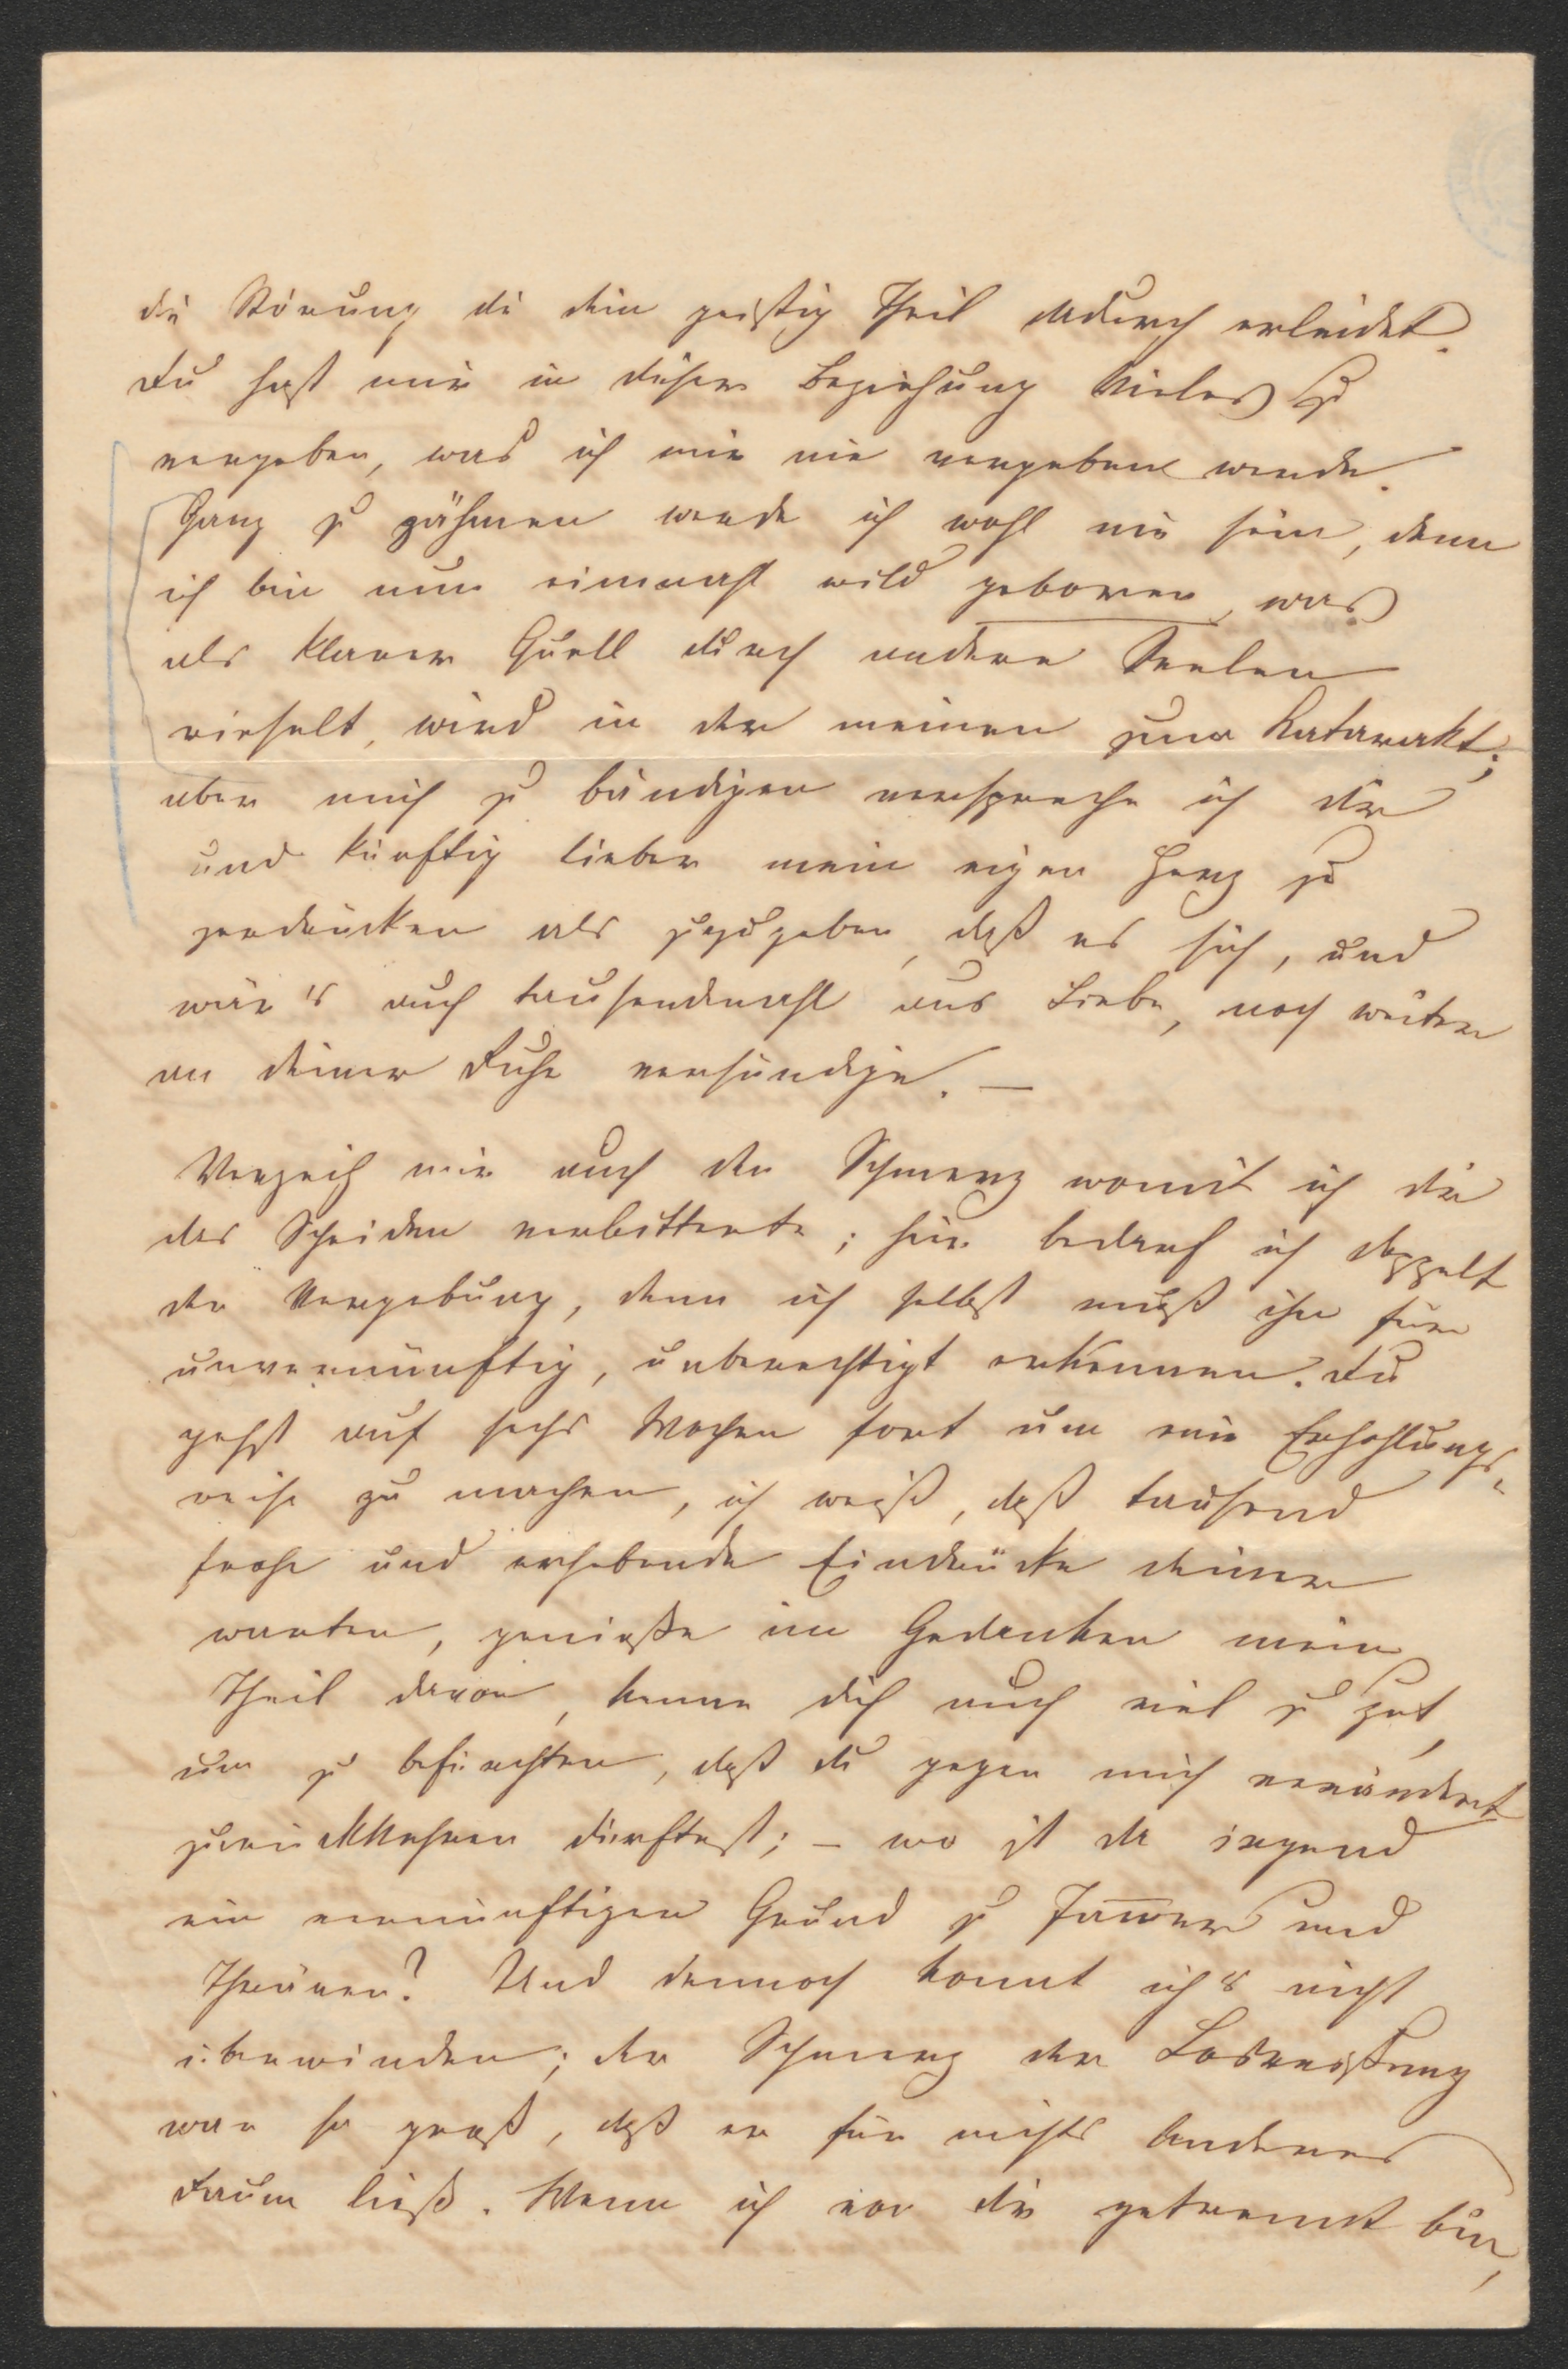 die Störung die dein geistig Theil dadurch erleidet.
Du hast mir in dieser Beziehung Vieles zu
vergeben, was ich mir nie vergeben werde.
Ganz zu zähmen werde ich wohl nie sein, denn
ich bin nun einmahl wild geboren, was
als klarer Quell durch andere Seelen
rieselt, wird in der meinen zum Katarakt;
aber mich zu bändigen verspreche ich dir
und künftig lieber mein eigen Herz zu
zerdrücken als zuzugeben, daß es sich, und
wär's auch tausendmahl aus Liebe, noch weiter
an deiner Ruhe versündige. —
Verzeih mir auch den Schmerz womit ich dir
das Scheiden verbitterte; hier bedarf ich doppelt
der Vergebung, denn ich selbst muß ihn für
unvernünftig, unberechtigt erkennen. Du
gehst auf sechs Wochen fort um eine Erhohlungs-
reise zu machen, ich weiß, daß tausend
frohe und erhebende Eindrücke deiner
warten, genieße im Gedanken mein
Theil davon, kenne dich auch viel zu gut,
um zu befürchten, daß du gegen mich verändert
zurückkehren dürftest; — wo ist da irgend
ein vernünftiger Grund zu Jam̅er und
Thränen? Und dennoch konnt ich's nicht
überwinden; der Schmerz der Losreißung
war so groß, daß er für nichts Anderes
Raum ließ. Wenn ich von dir getrennt bin,